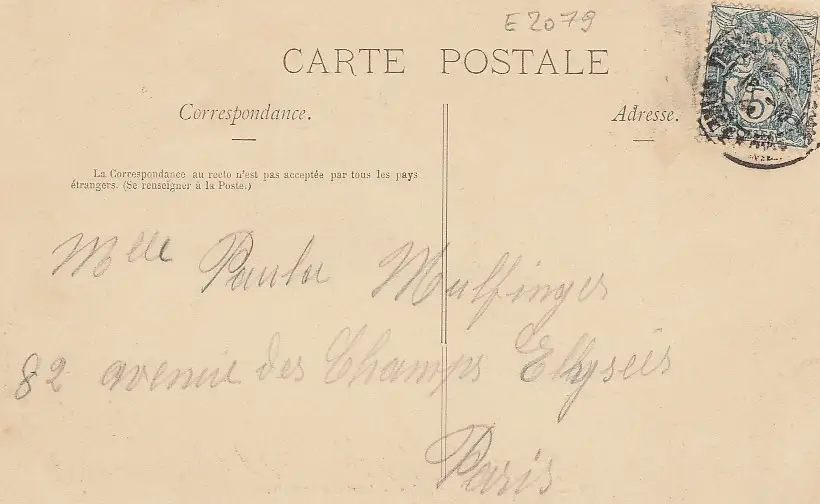 E 2079
CARTE POSTALE
Correspondance.
Adresse.
La Correspondance au recto n'est pas acceptée par tous les pays
étrangers. (Se renseigner à la Poste.)
5
Melle Paula Mulfinger
82 avenue des Champs Elysées
Paris